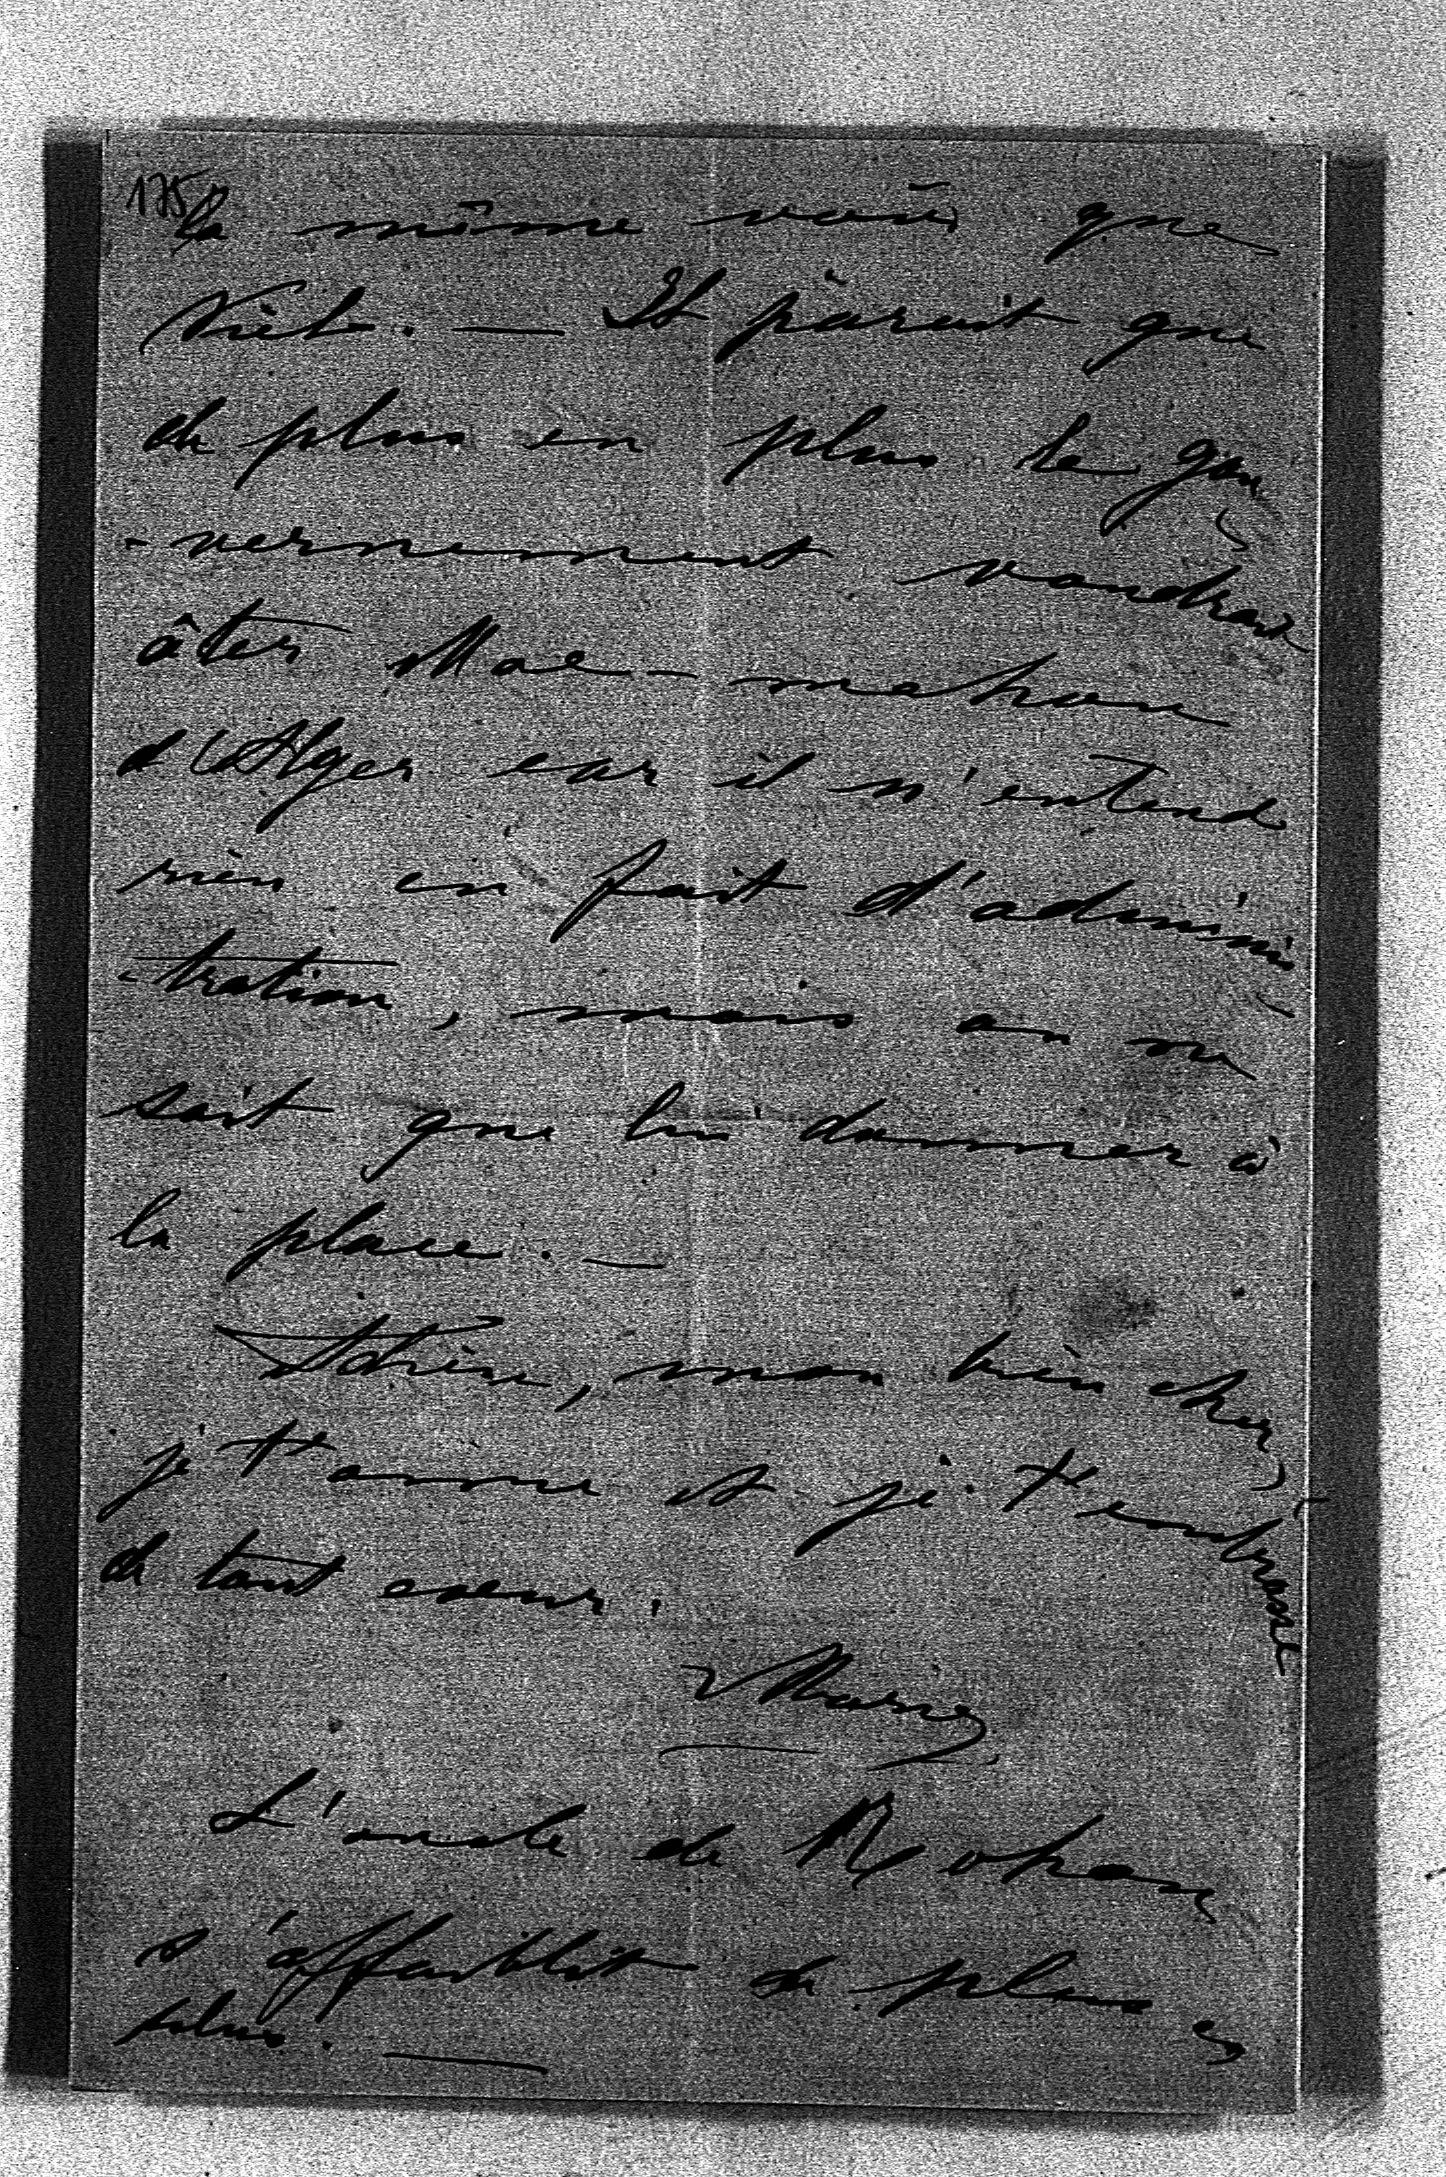 175
la même voie que
Niel. — Il parait que
de plus en plus le gou
-vernement voudrait
ôter Mac-mahon
d'Alger car il n'entend
rien en fait d'adminis
-tration, mais on ne
sait que lui donner à
la place. —
Adieu, mon bien cher,
je t'aime et je t'embrasse
de tout coeur.
L'oncle de Rohan
s'affaiblit de plus en
plus. —